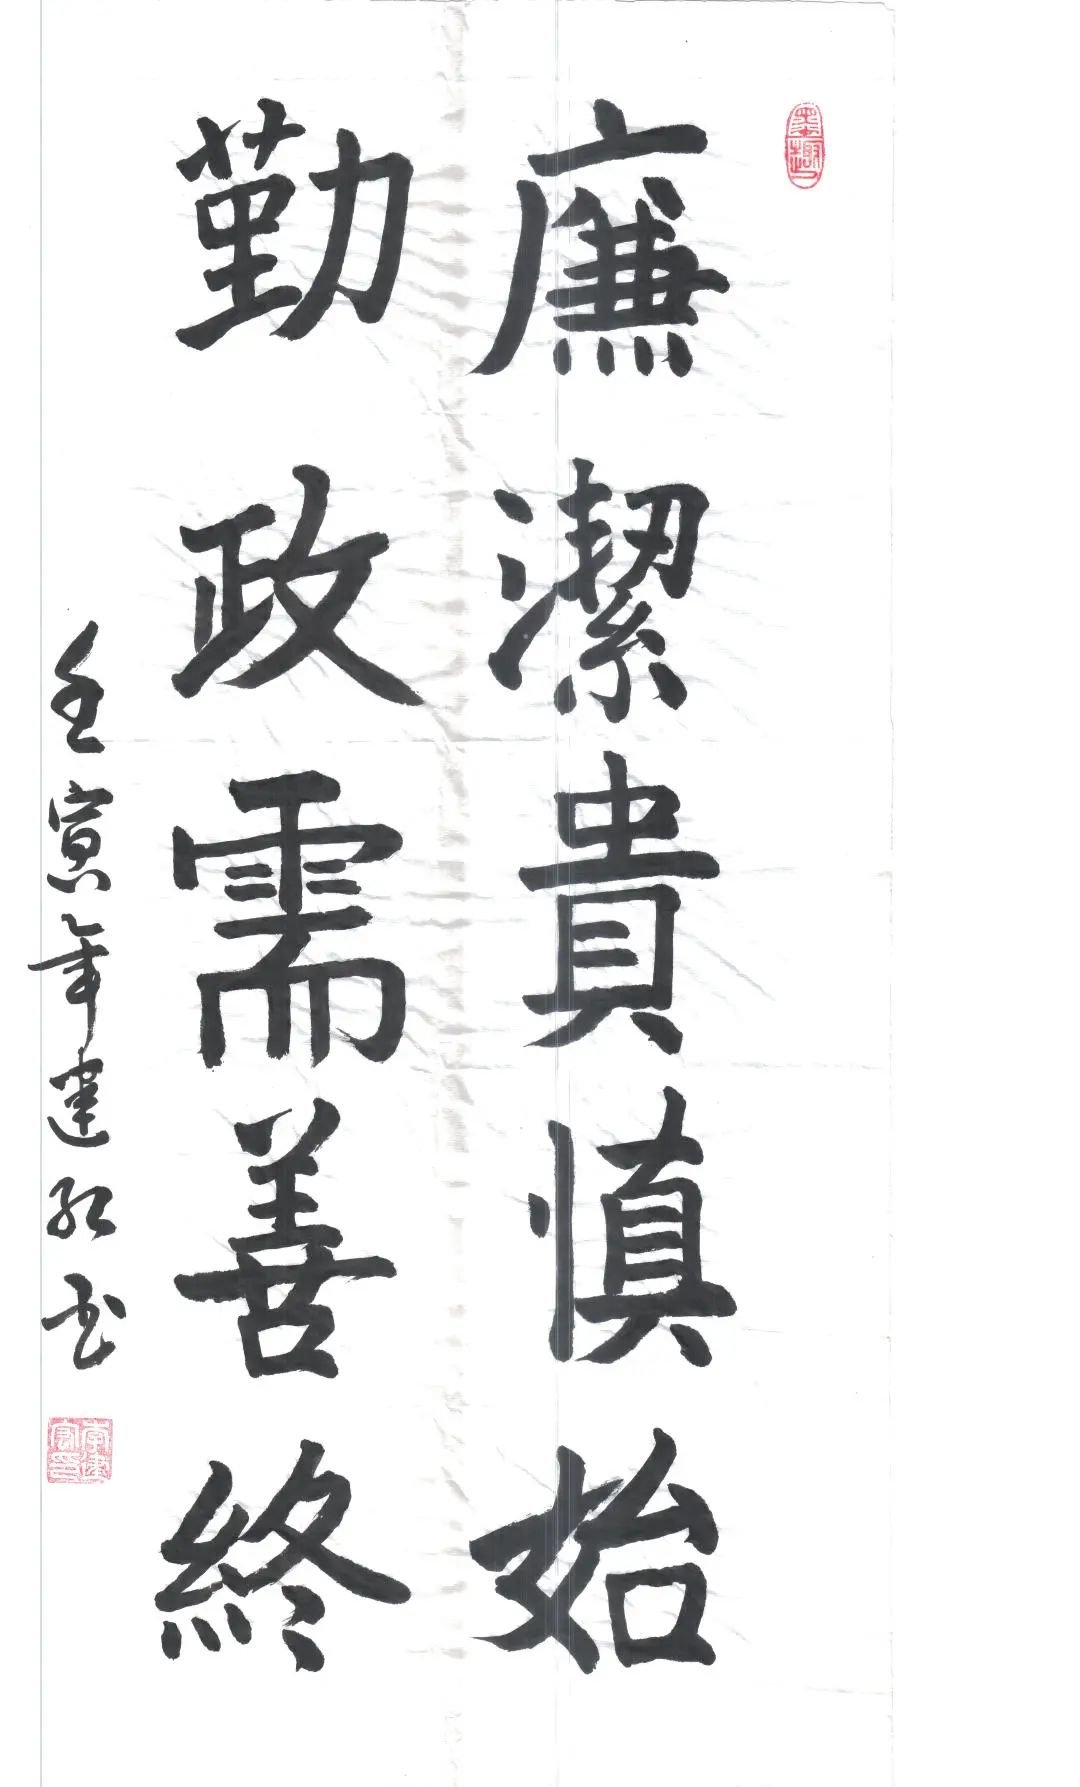 廉潔貴慎始
勤政需善終
壬寅年建红书